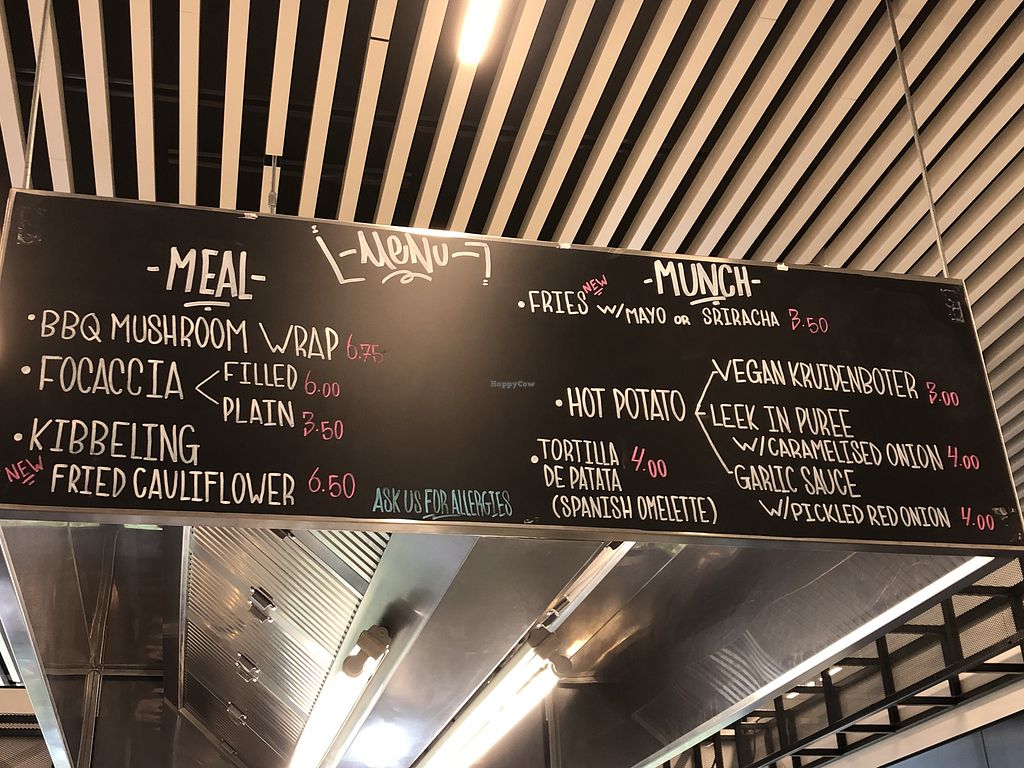 -MENU-
-MEAL-
• BBQ MUSHROOM WRAP 6.75
• FOCACCIA
FILLED 6.00
PLAIN 3.50
• KIBBELING
NEW FRIED CAULIFLOWER 6.50
ASK US FOR ALLERGIES
-MUNCH-
NEW
• FRIES W/MAYO OR SRIRACHA 3.50
• HOT POTATO
VEGAN KRUIDENBOTER 3.00
LEEK IN PUREE
W/CARAMELISED ONION 4.00
GARLIC SAUCE
W/PICKLED RED ONION 4.00
• TORTILLA 4.00
DE PATATA
(SPANISH OMELETTE)
HappyCow